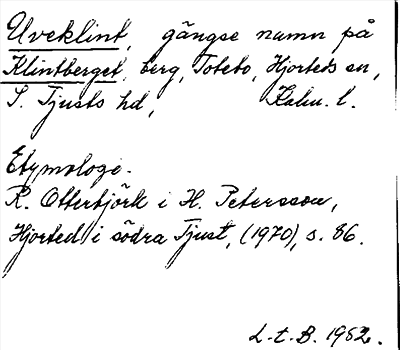 Uveklint, gängse namn på
Klintberget, berg, Totebo, Hjorteds sn,
S. Tjusts hd, Kalm. l.
Etymologi.
R. Otterbjörk i H. Petersson,
Hjorted i södra Tjust, (1970), s. 86.
L.t.B. 1982.